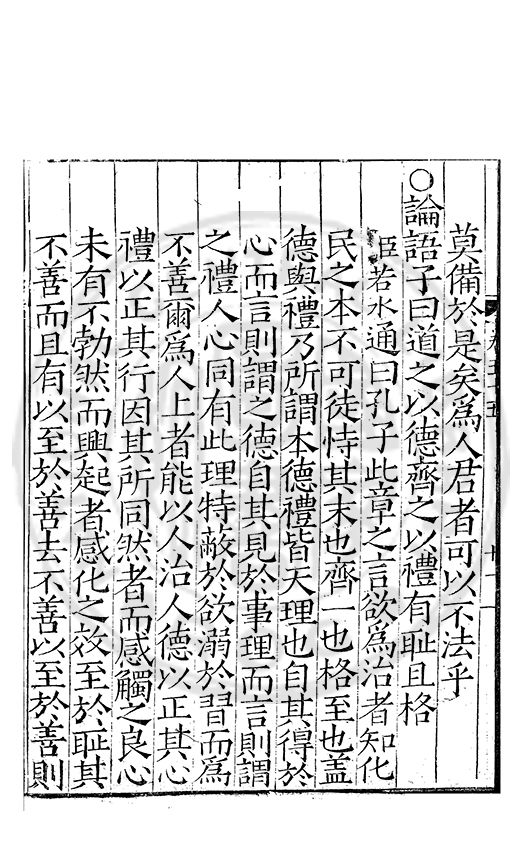 莫備於是矣爲人君者可以不法乎
○論語子曰道之以德齊之以禮有耻且格
臣若水通曰孔子此章之言欲爲治者知化
民之本不可徒恃其末也齊一也格至也盖
德與禮乃所謂本德禮皆天理也自其得於
心而言則謂之德自其見於事理而言則謂
之禮人心同有此理特蔽於欲溺於習而爲
不善爾爲人上者能以人治人德以正其心
禮以正其行因其所同然者而感觸之良心
未有不勃然而興起者感化之效至於耻其
不善而且有以至於善去不善以至於善則